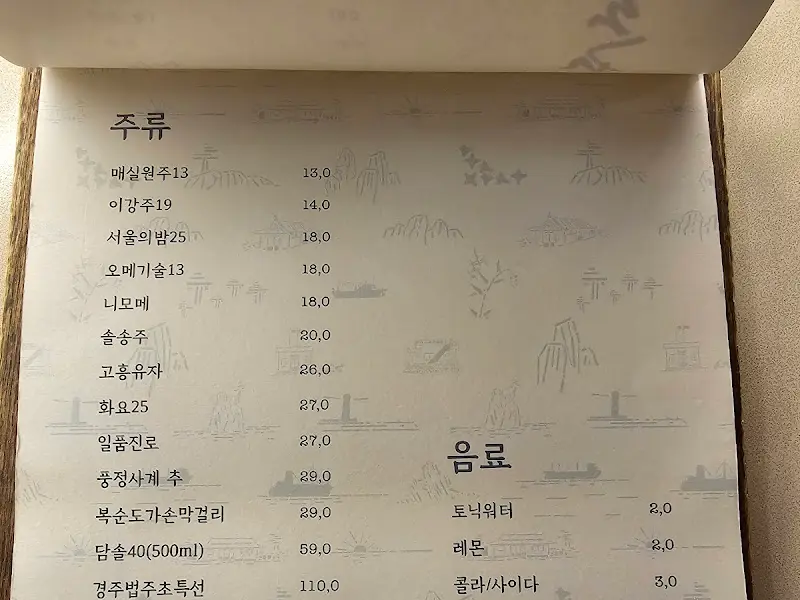 주류
매실원주13 13,0
이강주19 14,0
서울의밤25 18,0
오메기술13 18,0
니모메 18,0
솔송주 20,0
고흥유자 26,0
화요25 27,0
일품진로 27,0
풍정사계 추 29,0
복순도가손막걸리 29,0
담솔40(500ml) 59,0
경주법주초특선 110,0
음료
토닉워터 2,0
레몬 2,0
콜라/사이다 3,0